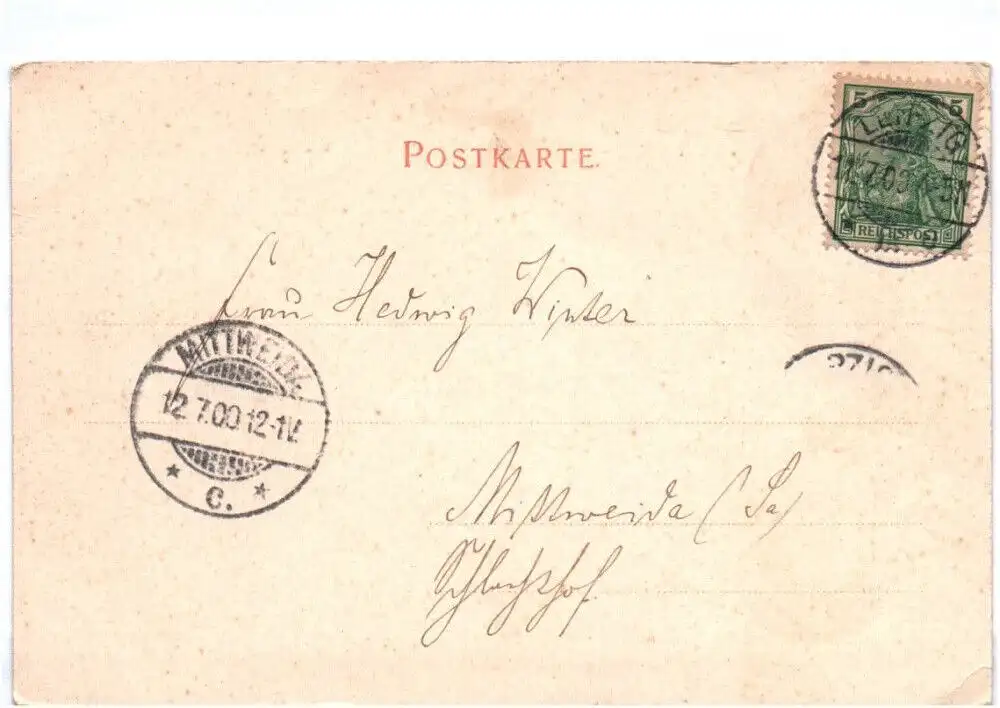 POSTKARTE.
5 5
LEIPZIG
11.7.00
REICHSPOST
Frau Hedwig Winter
MITTWEIDA.
12.7.00 12-1V.
* C. *
Mittweida (Sa)
Schlachthof.